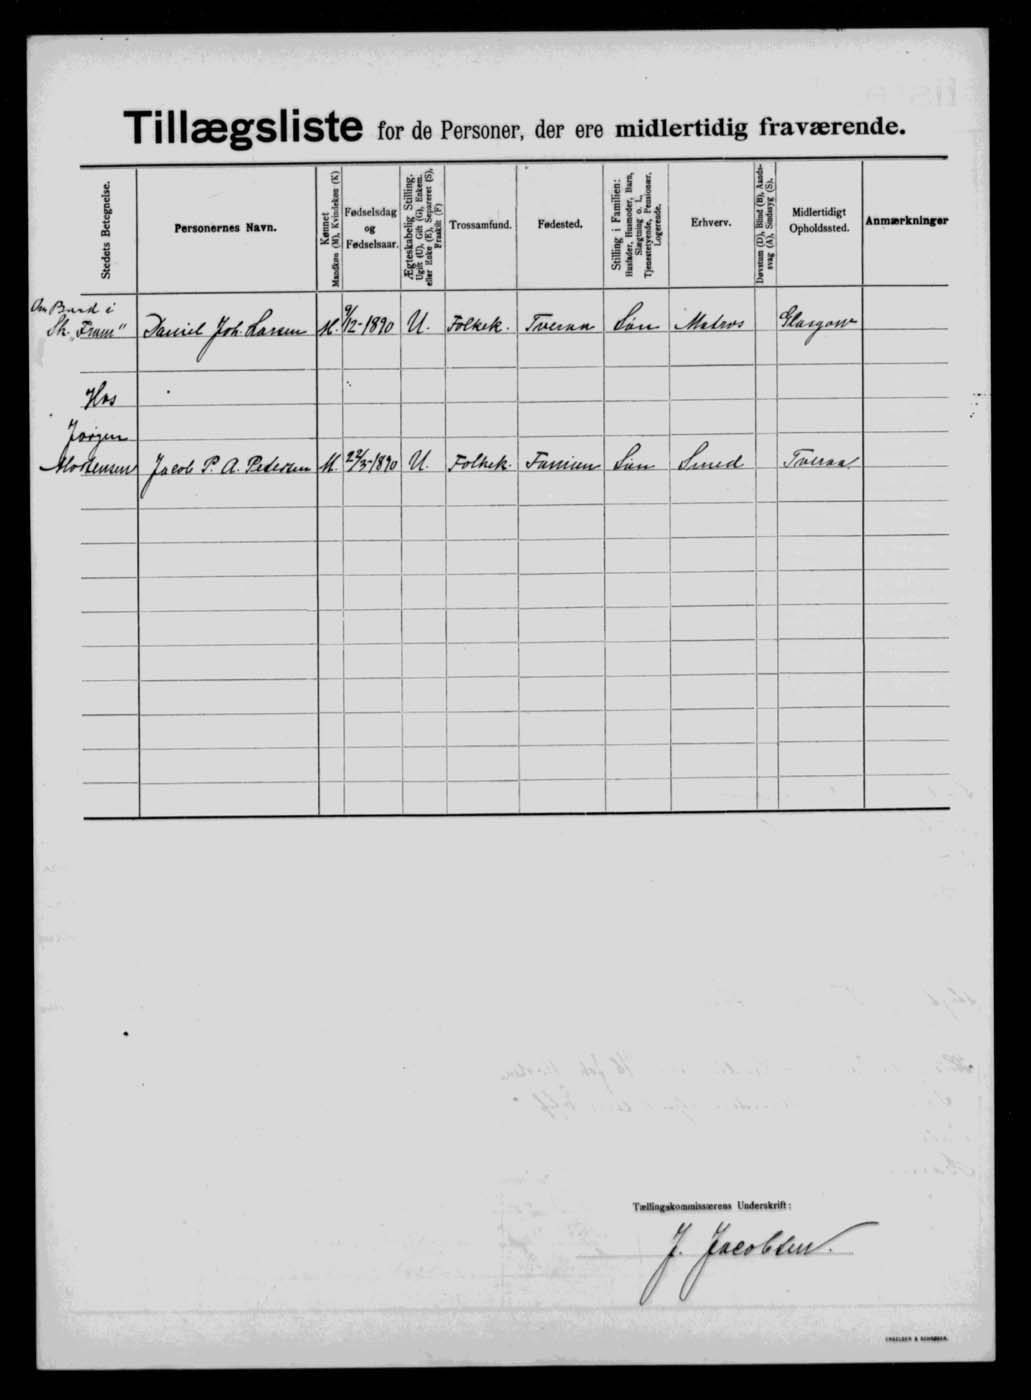 Tillægsliste for de Personer, der ere midlertidig fraværende.
Stedets Betegnelse.
Personernes Navn.
Kønnet
Mandkøn (M), Kvindekøn (K)
Fødselsdag
og
Fødselsaar.
Ægteskabelig Stilling.
Ugift (U), Gift (G), Enkem.
eller Enke (E), Separeret (S),
Fraskilt (F)
Trossamfund.
Fødested.
Stilling i Familien:
Husfader, Husmoder, Barn,
Slægtning o. l.,
Tjenestetyende, Pensionær,
Logerende.
Erhverv.
Døvstum (D), Blind (B), Aands-
svag (A), Sindssyg (S).
Midlertidigt
Opholdssted.
Anmærkninger
Om Bord i
Sk. „Fram" Daniel Joh. Larsen M. 9/12-1890 U. Folkek. Tveraa Søn Matros Glasgow
Hos
Jørgen
Mortensen Jacob P. A. Petersen M. 22/3-1890 U. Folkek. Famien Søn Smed Tveraa
Tællingskommissærens Underskrift:
J. Jacobsen.